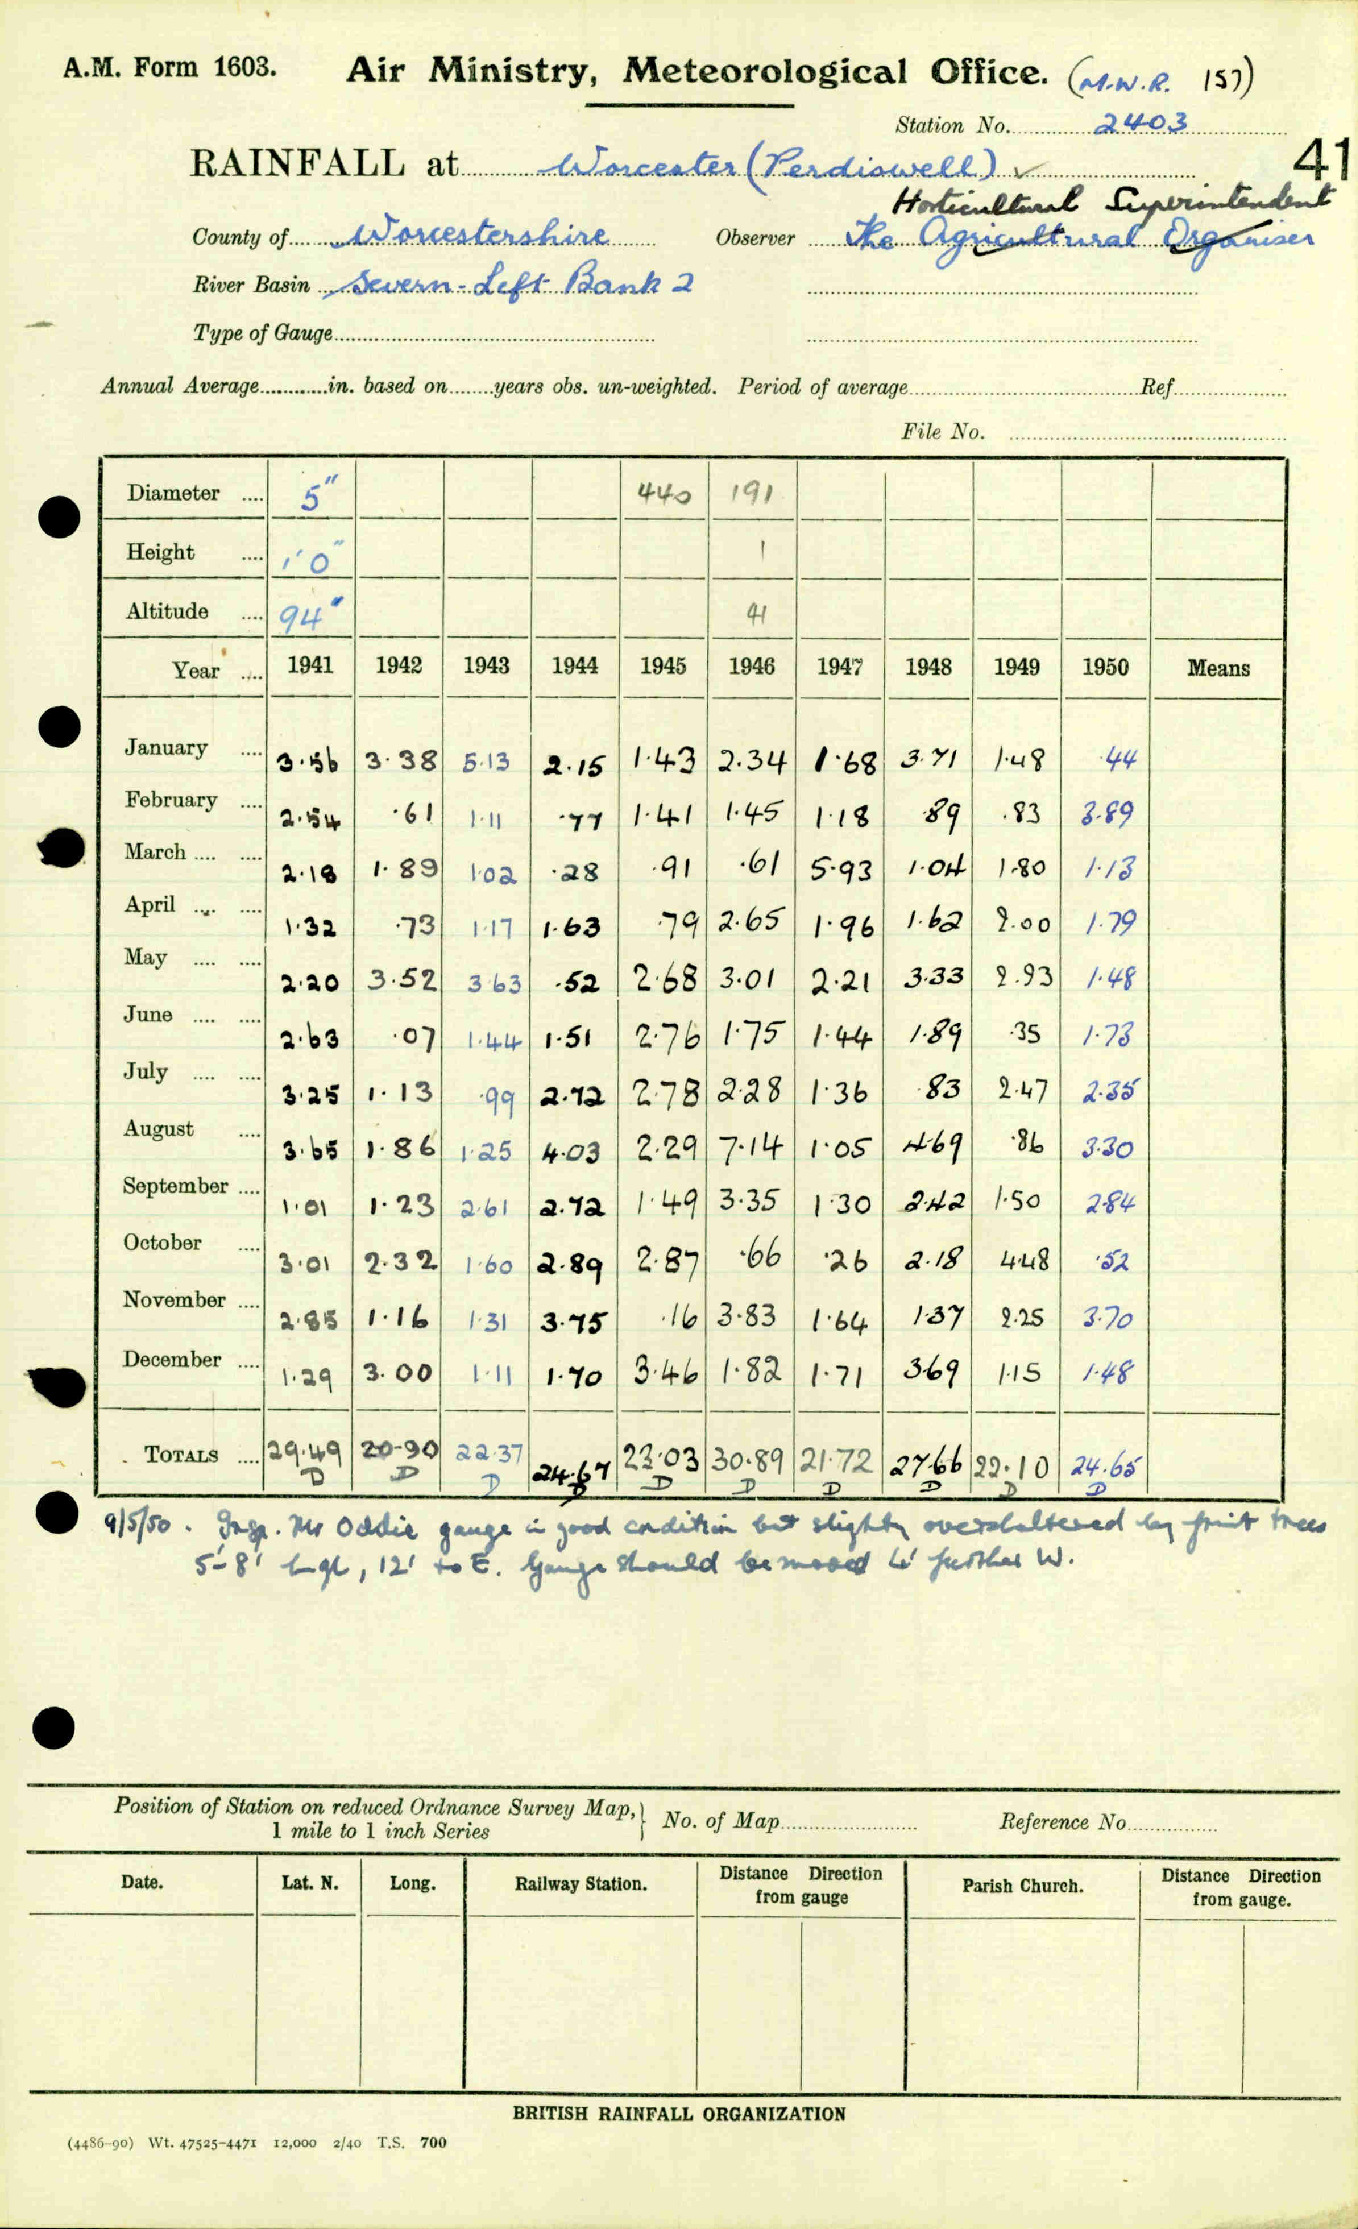 A.M. Form 1603. Air Ministry, Meteorological Office. (M.W.R. 157)
Station No. 2403
41
RAINFALL at Worcester (Perdiswell) ✓
Horticultural Superintendent
County of Worcestershire Observer The Agricultural Organiser
River Basin Severn - Left Bank 2
Type of Gauge
Annual Average in. based on years obs. un-weighted. Period of average Ref
File No.
Diameter 5" 440 191
Height 1' 0" 1
Altitude 94" 41
Year 1941 1942 1943 1944 1945 1946 1947 1948 1949 1950 Means
January 3.56 3.38 5.13 2.15 1.43 2.34 1.68 3.71 1.48 .44
February 2.54 .61 1.11 .77 1.41 1.45 1.18 .89 .83 3.89
March 2.18 1.89 1.02 .28 .91 .61 5.93 1.04 1.80 1.13
April 1.32 .73 1.17 1.63 .79 2.65 1.96 1.62 2.00 1.79
May 2.20 3.52 3.63 .52 2.68 3.01 2.21 3.33 2.93 1.48
June 2.63 .07 1.44 1.51 2.76 1.75 1.44 1.89 .35 1.73
July 3.25 1.13 .99 2.72 2.78 2.28 1.36 .83 2.47 2.35
August 3.65 1.86 1.25 4.03 2.29 7.14 1.05 4.69 .86 3.30
September 1.01 1.23 2.61 2.72 1.49 3.35 1.30 2.42 1.50 2.84
October 3.01 2.32 1.60 2.89 2.87 .66 .26 2.18 4.48 .52
November 2.85 1.16 1.31 3.75 .16 3.83 1.64 1.37 2.25 3.70
December 1.29 3.00 1.11 1.70 3.46 1.82 1.71 3.69 1.15 1.48
TOTALS 29.49 20.90 22.37 24.67 23.03 30.89 21.72 27.66 22.10 24.65
D D D D D D D D D D
9/5/50. Insp. Mr Oddie gauge in good condition but slightly oversheltered by fruit trees
5'-8' hgh, 12' to E. Gauge should be moved 4' further W.
Position of Station on reduced Ordnance Survey Map, 1 mile to 1 inch Series } No. of Map Reference No
Date. Lat. N. Long. Railway Station. Distance Direction from gauge Parish Church. Distance Direction from gauge.
BRITISH RAINFALL ORGANIZATION
(4486-90) Wt. 47525-4471 12,000 2/40 T.S. 700